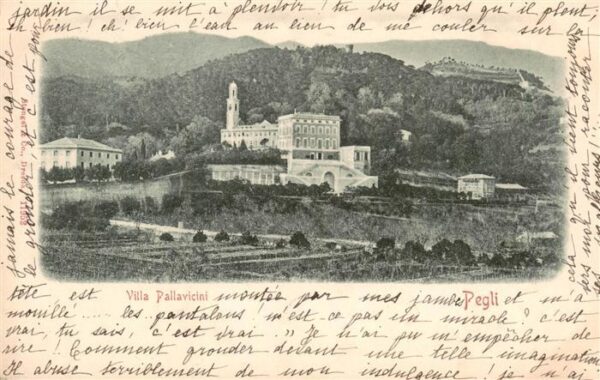 jardin il se mit à pleuvoir ! tu vois dehors qu'il pleut,
eh bien ! eh ! bien l'eau au lien de me couler sur
Villa Pallavicini
Pegli
tête est montée par mes jambes et m'a
mouillé .... les pantalons ! n'est ce pas un miracle ? c'est
vrai, tu sais, c'est vrai ! " Je n'ai pu m'empêcher de
rire ! Comment gronder devant une telle imagination
Il abuse terriblement de mon indulgence ! je n'ai
jamais le courage de
le gronder, et c'est
cela qu'il faut toujours